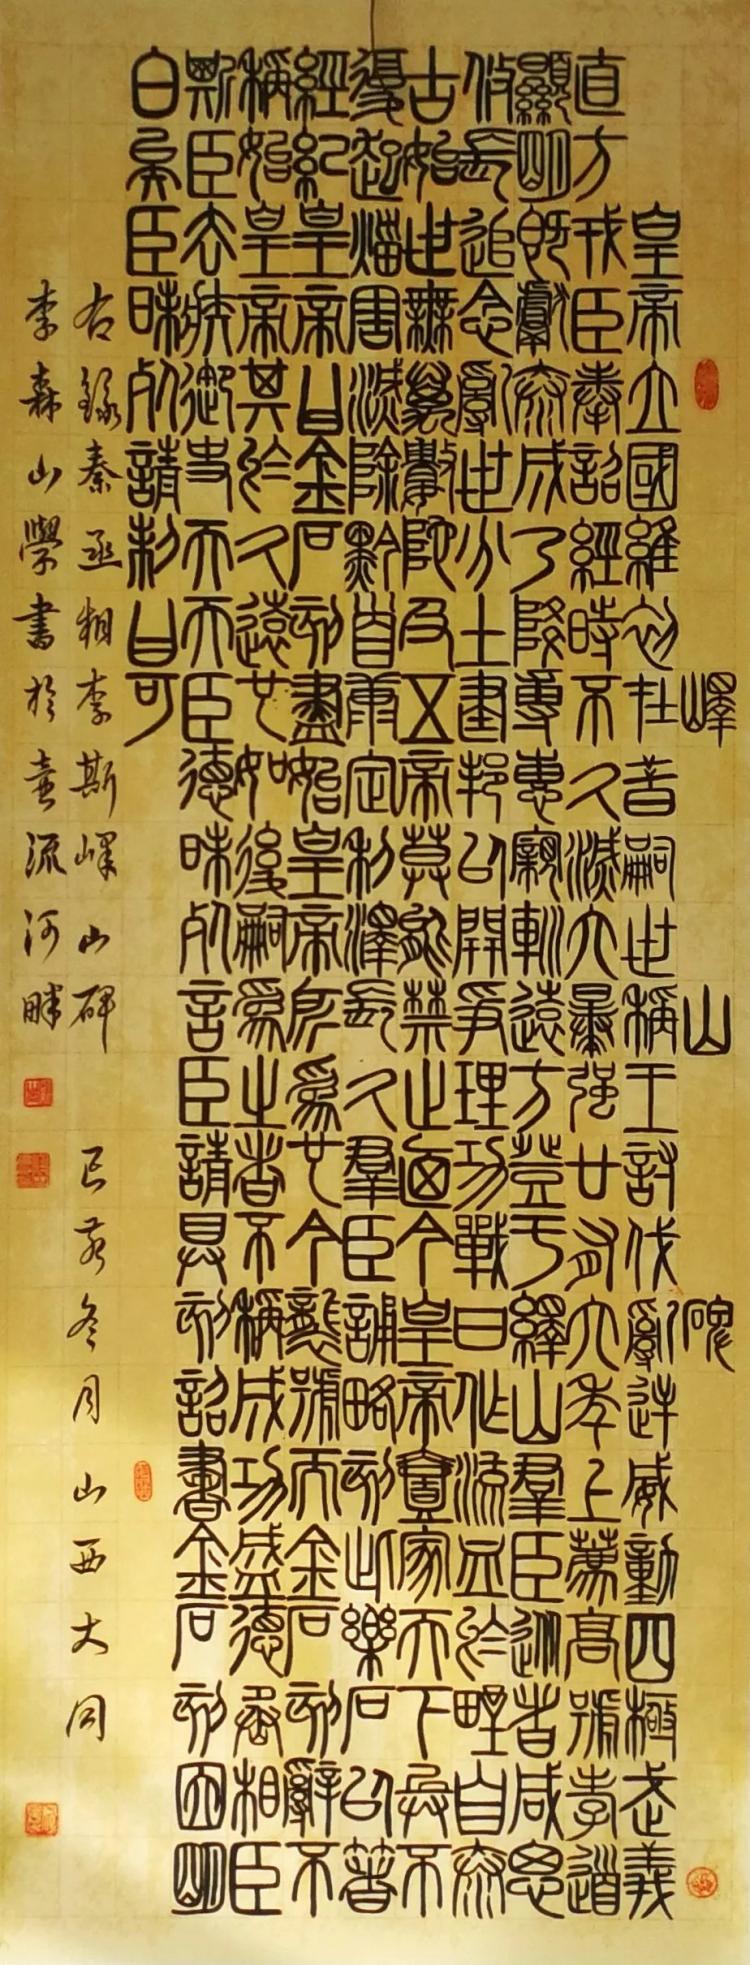 嶧山碑
皇帝立國維初在昔嗣世稱王討伐亂逆威動四極武義
直方戎臣奉詔經時不久滅六暴強廿有六年上薦高號孝道
顯明既獻泰成乃降專惠親巡遠方登于繹山群臣從者咸思
攸長追念亂世分土建邦以開爭理功戰日作流血於野自泰
古始世無萬數陀及五帝莫能禁止廼今皇帝壹家天下兵不
復起災害滅除黔首康定利澤長久群臣誦略刻此樂石以著
經紀皇帝曰金石刻盡始皇帝所為也今襲號而金石刻辭不
稱始皇帝其於久遠也如後嗣為之者不稱成功盛德丞相臣
斯臣去疾御史夫夫臣德昧死言臣請具刻詔書金石刻因明
白矣臣昧死請制曰可
右錄秦丞相李斯嶧山碑 己亥冬月山西大同
李森山學書於壺流河畔